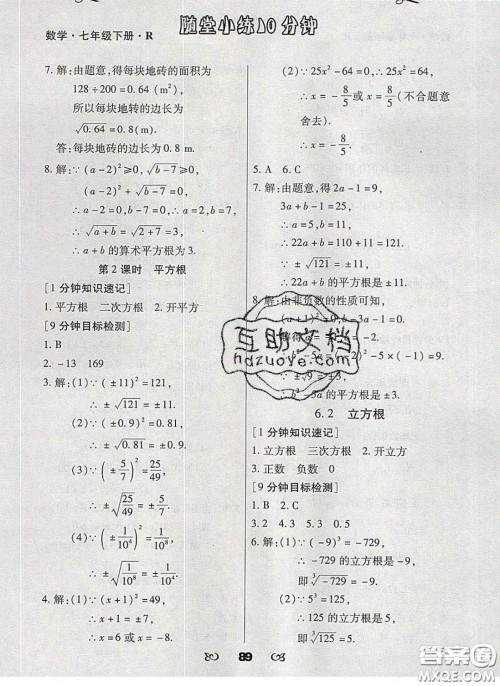 随堂小练10分钟
数学·七年级下册·R
7. 解:由题意,得每块地砖的面积为
128÷200=0.64(m²),
所以每块地砖的边长为
√0.64=0.8(m).
答:每块地砖的边长为0.8 m.
8. 解:∵(a-2)²≥0,√(b-7)≥0,
(a-2)²+√(b-7)=0,
∴a-2=0,b-7=0,∴a=2,b=7,
∴√(a+b)=√(2+7)=3,
∴a+b的算术平方根为3.
第2课时 平方根
[1分钟知识速记]
1. 平方根 二次方根 2. 开平方
[9分钟目标检测]
1. B
2. -13 169
3. 解:(1)∵(±11)²=121,
∴±√121=±11.
(2)∵(±0.9)²=0.81,
∴±√0.81=±0.9.
(3)∵(±5/7)²=25/49,
∴±√(25/49)=±5/7.
(4)∵(±1/10⁴)²=1/10⁸,
∴±√(1/10⁸)=±1/10⁴.
4. 解:(1)∵(x+1)²=49,
∴x+1=±7,
∴x=6或x=-8.
(2)∵25x²-64=0,∴25x²=64,
∴x=-8/5或x=8/5(不合题意
舍去).
∴x=-8/5.
5. A 6. C
7. 解:由题意,得2a-1=9,
3a+b-1=25,
∴a=5,b=11,
∴22a+b=110+11=121.
∵±√121=±11,
∴22a+b的平方根是±11.
8. 解:由非负数的性质可知,
6.2 立方根
[1分钟知识速记]
1. 立方根 三次方根 2. 开立方
3. 正数 负数 0
[9分钟目标检测]
1. B 2. C
3. 2 4. 3 5. 0.5
6. 解:(1)∵(-9)³=-729,
∴-729的立方根是-9.
即∛-729=-9.
(2)∵5³=125,
∴125的立方根是5,
即∛125=5.
互助文档
hdzuoye.com
89
答案圈
MXQE.COM